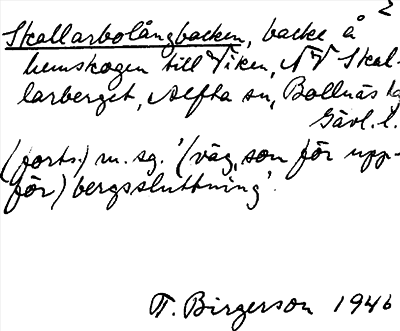 2
Skallarbolångbacken, backe å
hemskogen till Viken, NV Skal-
larberget, Alfta sn, Bollnäs tg
Gävl. l.
(forts.) m. sg. '(väg, som för upp-
för) bergssluttning'.
T. Birgerson 1946